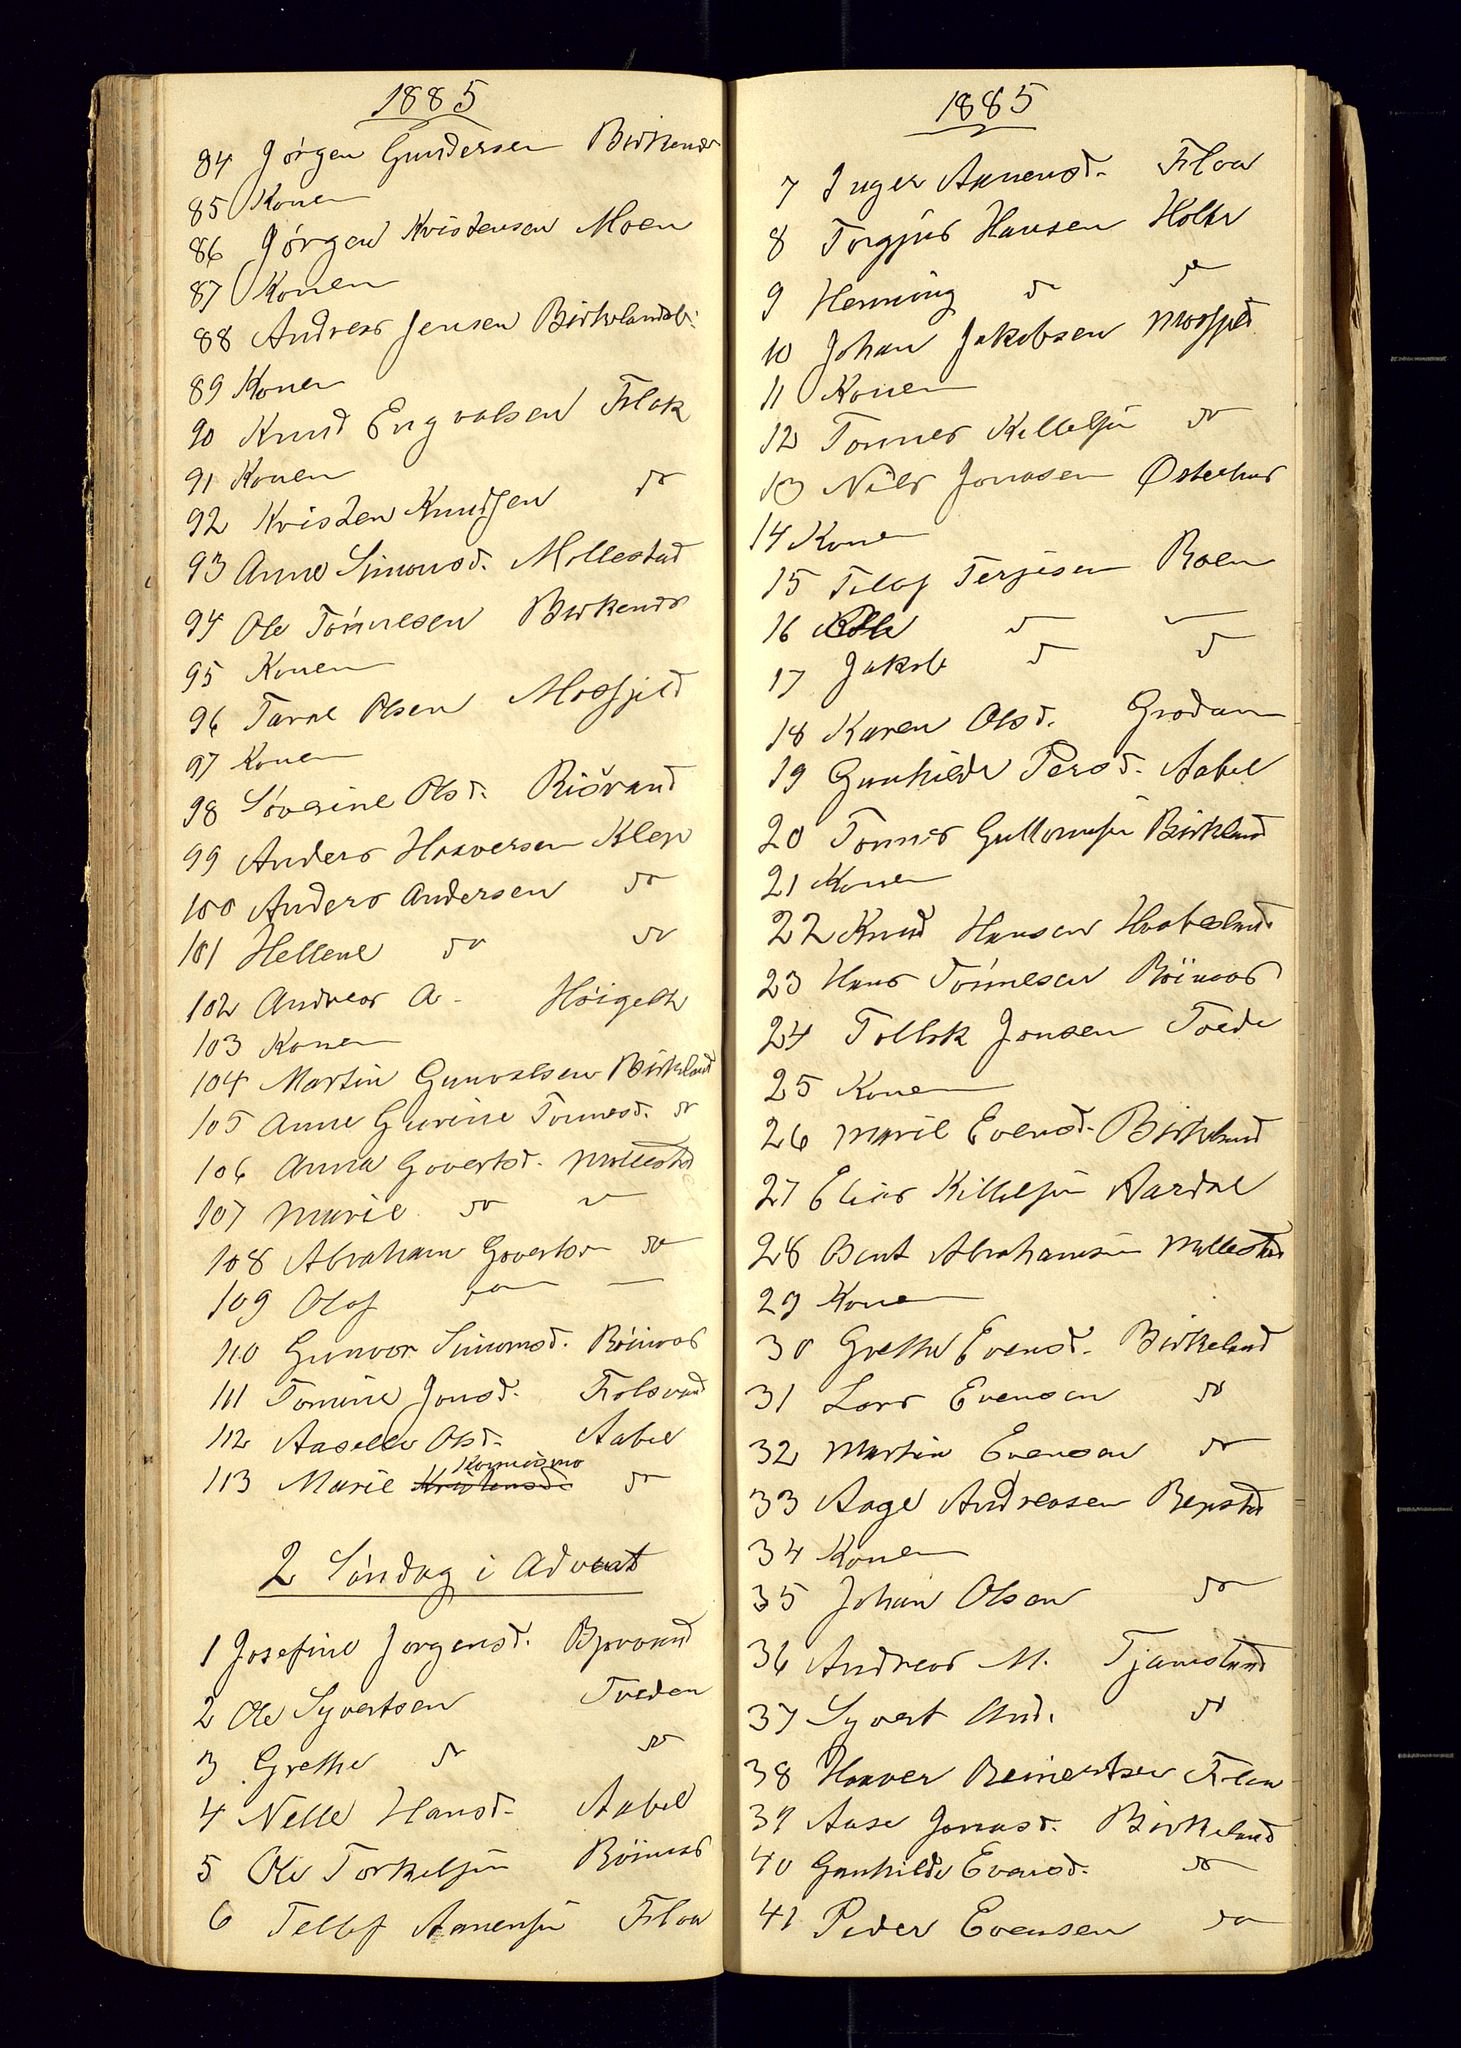 1885
84 Jörgen Gundersen Birkenes
85 Konen
86 Jörgen Kristensen Moen
87 Konen
88 Andreas Jensen Birkelandsb.
89 Konen
90 Knud Engvalsen Flak
91 Konen
92 Kristen Knudsen do
93 Anne Simonsd. Mollestad
94 Ole Tönnesen Birkenes
95 Konen
96 Taral Olsen Mosfjeld
97 Konen
98 Söverine Olsd. Risvand
99 Anders Haaversen Klep
100 Anders Andersen do
101 Hellene do do
102 Andreas A. Höigelt
103 Konen
104 Martin Gunvalsen Birkeland
105 Anne Gurine Tomesd. do
106 Anna Govertsd. Mollestad
107 Marie do "
108 Abraham Govertsn do
109 Olaf do —
110 Gunvor Simonsd. Röinaas
111 Tomine Jonsd. Fidsvand
112 Aaselle Olsd. Aabel
113 Marie Kristensd. do
2 Söndag i Advent
1 Josefine Jorgensd. Bjorvand
2 Ole Syvertsen Tveden
3 Grethe do do
4 Nelle Hansd. Aabel
5 Ole Torkelsen Röinaas
6 Tellef Aanensen Flaa
1885
7 Inger Aanensd. Flaa
8 Torgjus Hansen Holte
9 Henning do do
10 Johan Jakobsen Mosfjeld
11 Konen
12 Tonnes Killelsen do
13 Nils Jonasen Østerhus
14 Konen
15 Tellef Terjesen Roen
16 do do
17 Jakob do do
18 Karen Olsd. Grødum
19 Gunhilde Persd. Aabel
20 Tonnes Guttormsen Birkland
21 Konen
22 Knud Hansen Haabesland
23 Hans Tönnesen Röinaas
24 Tollak Jonsen Tvede
25 Konen
26 Marie Evensd. Birkeland
27 Elias Killelsen Aardal
28 Bent Abrahamsen Mollestad
29 Konen
30 Grethe Evensd. Birkeland
31 Lars Evensen do
32 Martin Evensen do
33 Aage Andreasen Repstad
34 Konen
35 Johan Olsen do
36 Andreas M. Tjamsland
37 Syvert And. do
38 Haaver Reinertsen Flaa
39 Aase Jonasd. Birkeland
40 Gunhilde Evensd. do
41 Peder Evensen do